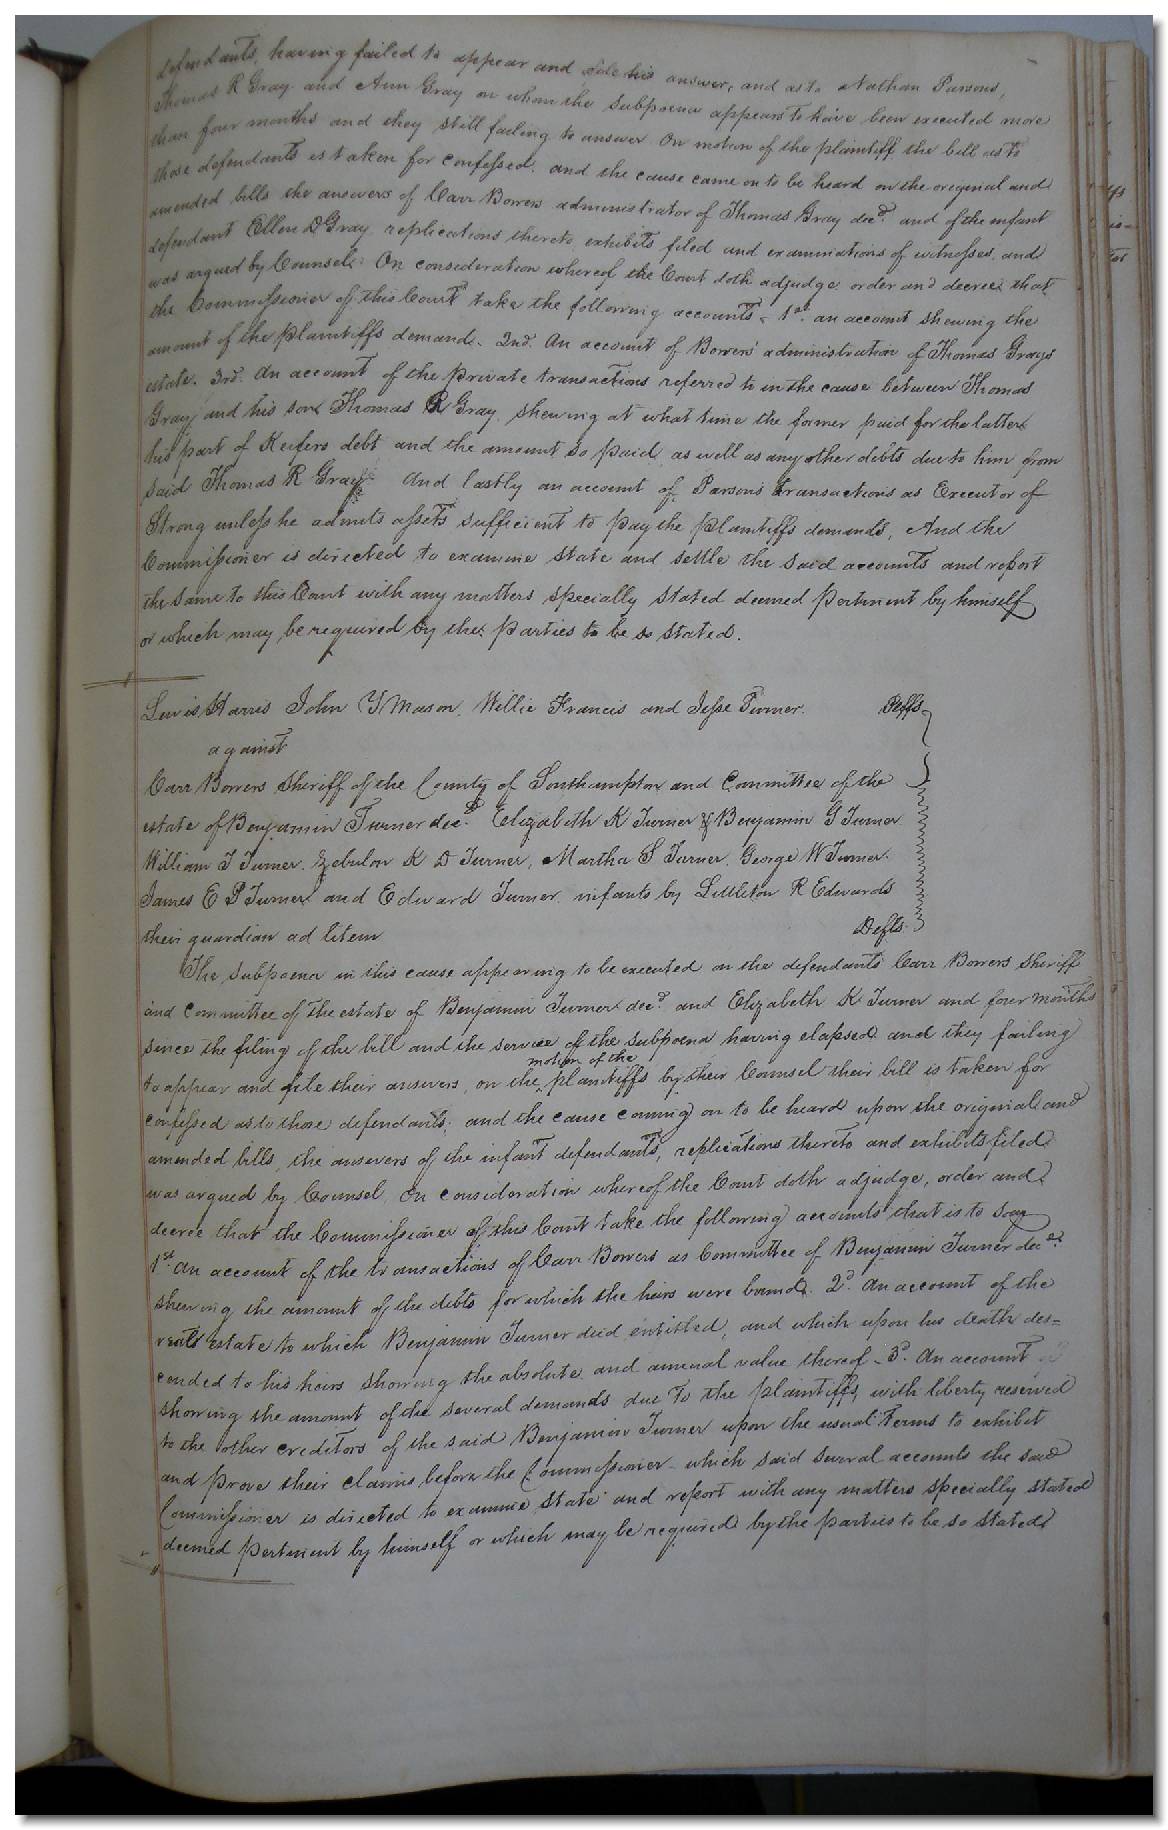 defendants, having failed to appear and file his answer, and as to Nathan Parsons,
Thomas R Gray and Ann Gray on whom the Subpoena appears to have been executed more
than four months and they still failing to answer On motion of the plaintiff the bill as to
those defendants is taken for confessed. and the cause came on to be heard on the original and
amended bills the answers of Carr Bowers administrator of Thomas Gray decd. and of the infant
defendant Ellen D Gray replications thereto, exhibits filed and examinations of witnesses, and
was argued by Counsel: On consideration whereof the Court doth adjudge order and decree that
the Commissioner of this Court take the following accounts, 1st. an account shewing the
amount of the plaintiffs demand. 2nd. An account of Bowers' administration of Thomas Grays
estate. 3rd. An account of the private transactions referred to in the cause between Thomas
Gray and his son Thomas R Gray, shewing at what time the former paid for the latter
his part of Keifers debt and the amount so paid, as well as any other debts due to him from
said Thomas R Gray. And lastly an account of Parsons transactions as Executor of
Strong unless he admits assets sufficient to pay the plaintiffs demands, And the
Commissioner is directed to examine state and settle the said accounts and report
the same to this Court with any matters specially stated deemed pertinent by himself
or which may be required by the parties to be so stated.
Lewis Harris John Y Mason, Willie Francis and Jesse Turner. Plffs
against
Carr Bowers Sheriff of the County of Southampton and Committee of the
estate of Benjamin Turner decd. Elizabeth K Turner & Benjamin G Turner
William T Turner. Zebulon K D Turner, Martha S Turner, George W Turner.
James E P Turner and Edward Turner infants by Littleton R Edwards
their guardian ad litem Defts.
The Subpoena in this cause appearing to be executed on the defendants Carr Bowers Sheriff
and Committee of the estate of Benjamin Turner decd. and Elizabeth K Turner and four months
since the filing of the bill and the service of the subpoena having elapsed and they failing
to appear and file their answers, on the motion of the plaintiffs by their Counsel their bill is taken for
confessed as to those defendants; and the cause coming on to be heard upon the original and
amended bills, the answers of the infant defendants, replications thereto and exhibits filed
was argued by Counsel, On consideration whereof the Court doth adjudge, order and
decree that the Commissioner of this Court take the following accounts that is to say
1st. An account of the transactions of Carr Bowers as Committee of Benjamin Turner decd.
shewing the amount of the debts for which the heirs were bound. 2d. An account of the
real estate to which Benjamin Turner died entitled, and which upon his death des=
cended to his heirs showing the absolute and annual value thereof - 3d. An account
showing the amount of the several demands due to the plaintiffs, with liberty reserved
to the other creditors of the said Benjamin Turner upon the usual terms to exhibit
and prove their claims before the Commissioner - which said several accounts the said
Commissioner is directed to examine state and report with any matters specially stated
deemed pertinent by himself or which may be required by the parties to be so stated